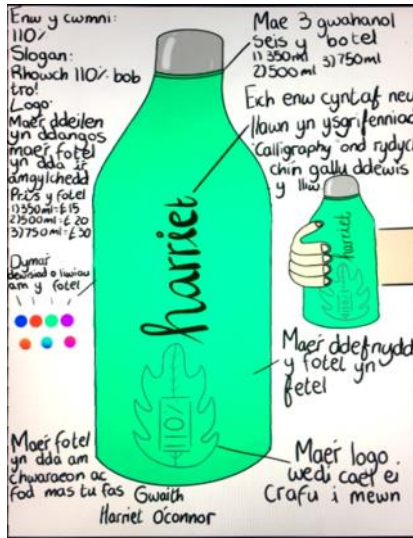 Enw y cwmni:
110%
Slogan:
Rhowch 110% bob
tro!
Logo:
Mae'r ddeilen
yn ddangos
mae'r fotel
yn dda i'r
amgylchedd
Pris y fotel
1) 350ml = £15
2) 500ml = £20
3) 750ml = £30
Dyma'r
dewisiad o liwiau
am y fotel
Mae'r fotel
yn dda am
chwaraeon ac
fod mas tu fas
Gwaith
Harriet O'connor
harriet
110%
Mae 3 gwahanol
seis y botel
1) 350ml 3) 750ml
2) 500ml
Eich enw cyntaf neu
llawn yn ysgrifenniad
Calligraphy ond rydych
chi'n gallu ddewis
y lliw
harriet
110%
Mae'r ddefnydd
y fotel yn
fetel
Mae'r logo
wedi cael ei
Crafu i mewn